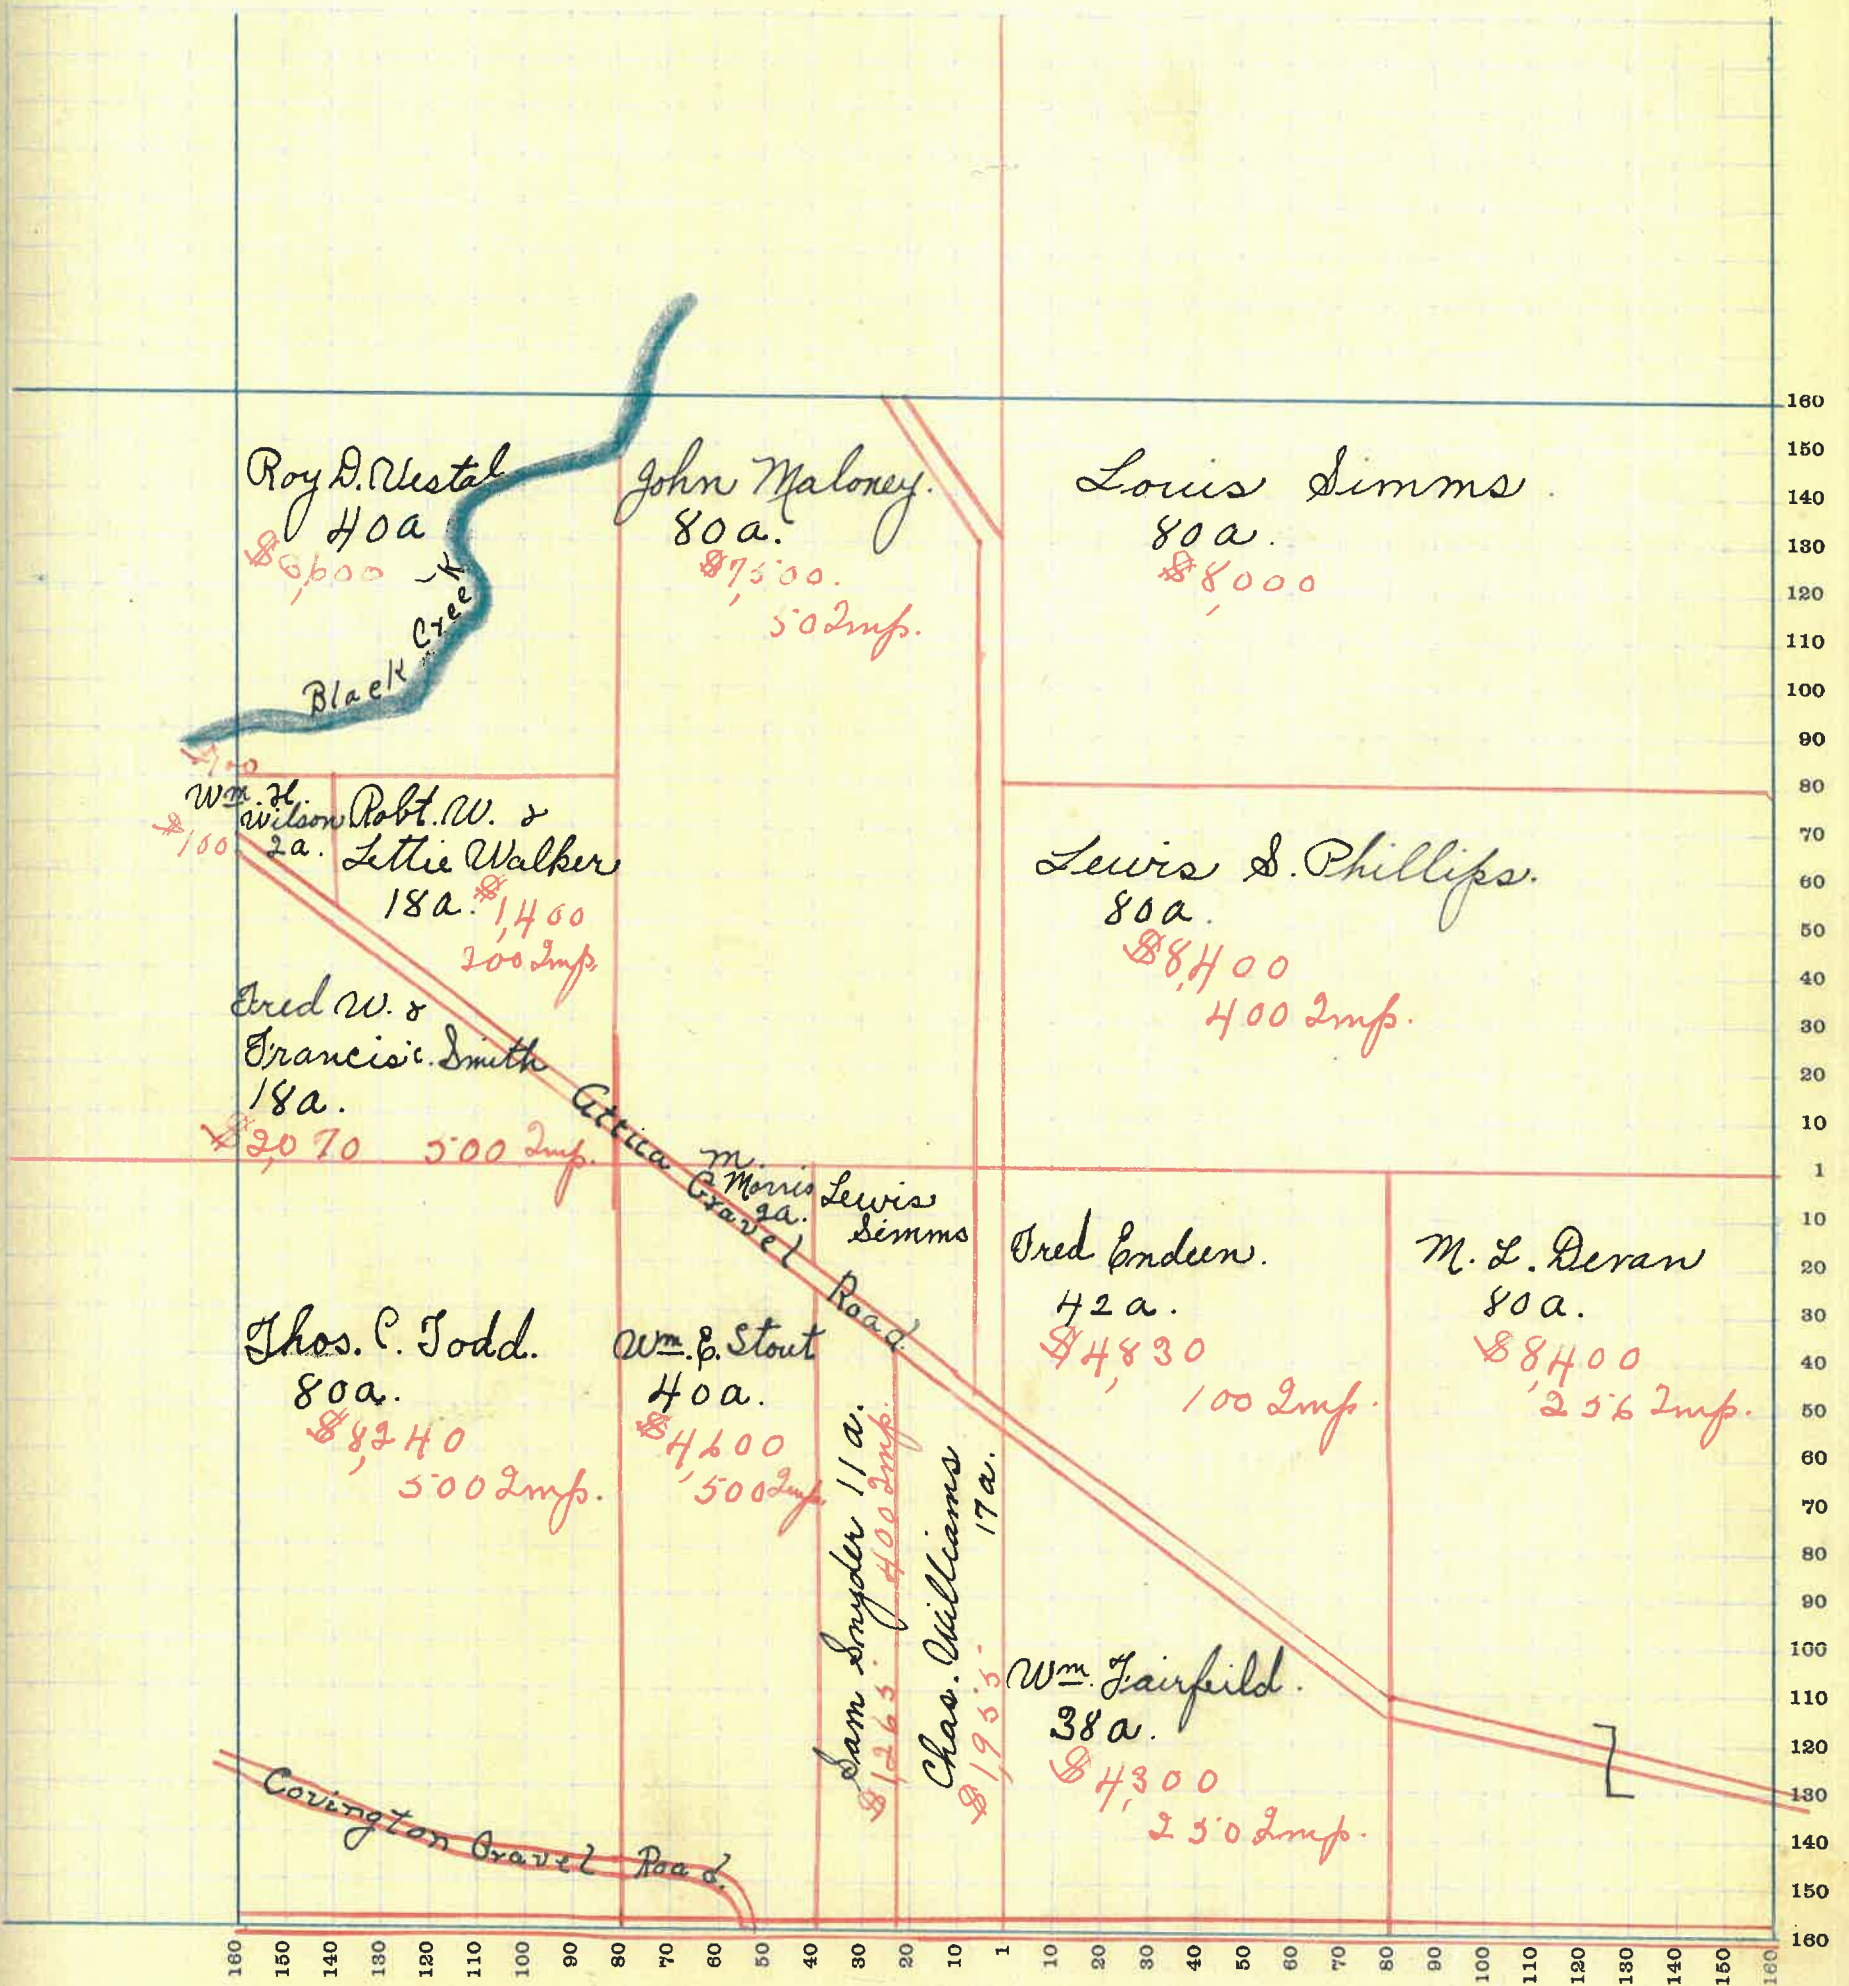 Roy D. Vestal
40a
John Maloney.
80a.
$7,500.
50 Imp.
Louis Simms.
80a.
$8,000
Black Creek
$700
Wm. H.
Wilson
2a.
$100
Robt. W. &
Lettie Walker
18a. $1,400
200 Imp.
Lewis S. Phillips.
80a.
$8,400
400 Imp.
Fred W. &
Francis C. Smith
18a.
$2,070 500 Imp.
Attica Gravel Road.
M.
Morris
2a.
Lewis
Simms
Fred Endeen.
42a.
$4,830
100 Imp.
M. L. Devan
80a.
$8,400
256 Imp.
Thos. C. Todd.
80a.
$8,240
500 Imp.
Wm. E. Stout
40a.
$4,600
500 Imp.
Sam Snyder 11a.
$1,265. 400 Imp.
Chas. Williams
17a.
$1,955
Wm. Fairfeild.
38a.
$4,300
250 Imp.
Covington Gravel Road.
160
150
140
130
120
110
100
90
80
70
60
50
40
30
20
10
1
10
20
30
40
50
60
70
80
90
100
110
120
130
140
150
160
160 150 140 130 120 110 100 90 80 70 60 50 40 30 20 10 1 10 20 30 40 50 60 70 80 90 100 110 120 130 140 150 160